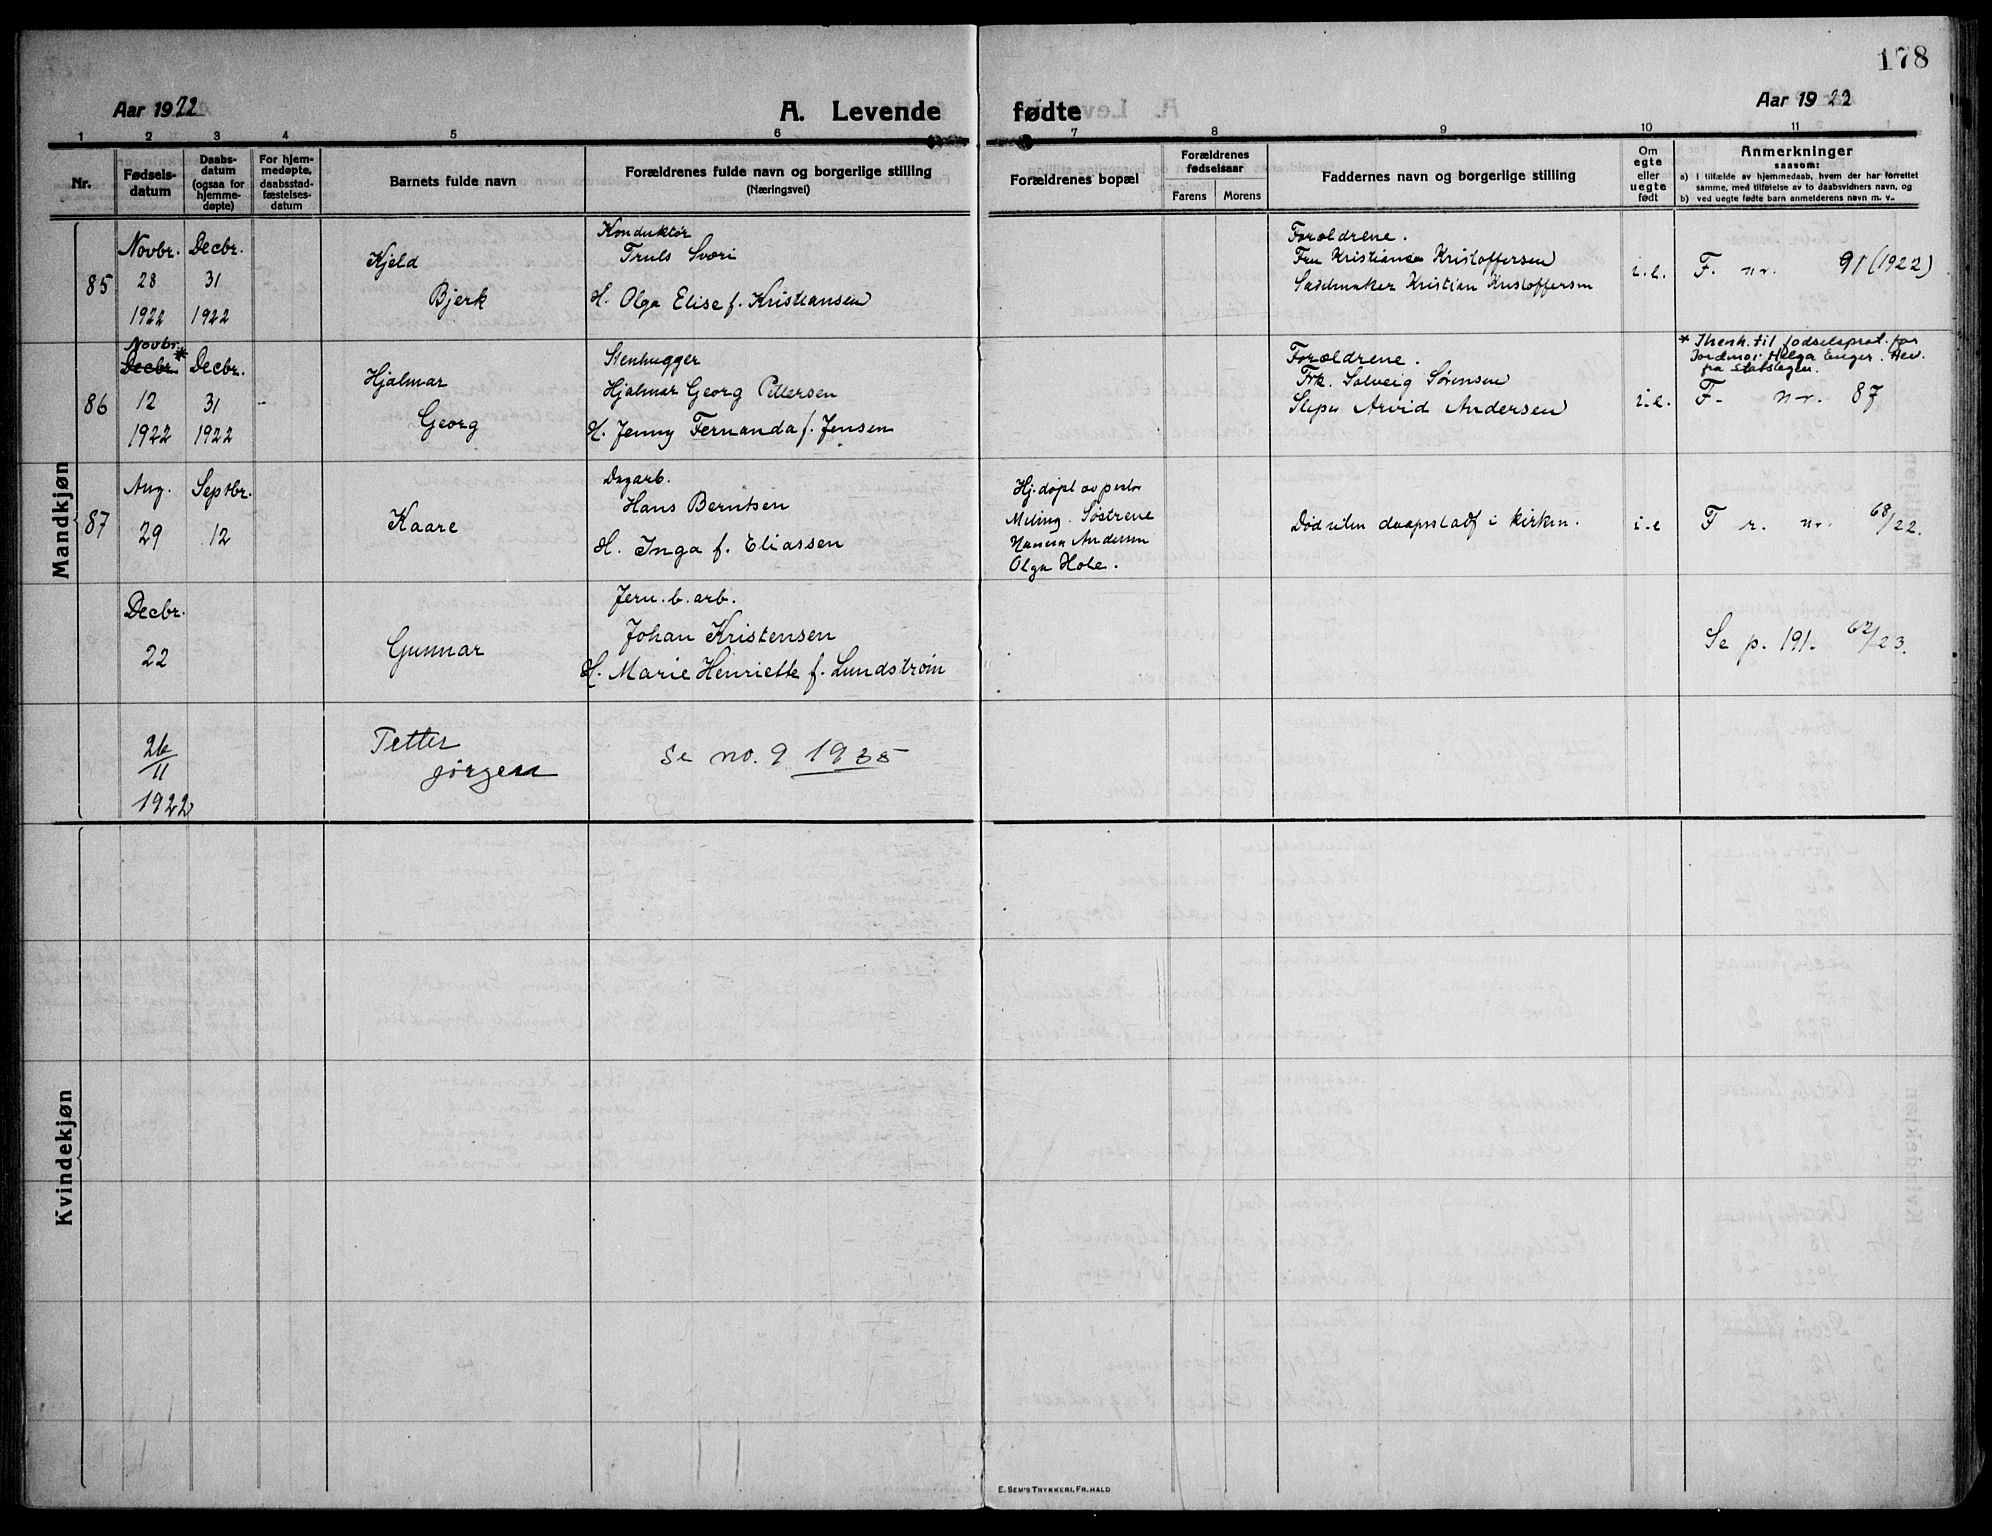 178
Aar 1922
A. Levende
fødte
Aar 1922
1 2 3 4 5 6 7 8 9 10 11
Nr.
Fødsels-
datum
Daabs-
datum
(ogsaa for
hjemme-
døpte)
For hjem-
medøpte,
daabsstad-
fæstelses-
datum
Barnets fulde navn
Forældrenes fulde navn og borgerlige stilling
(Næringsvei)
Forældrenes bopæl
Forældrenes
fødselsaar
Farens
Morens
Faddernes navn og borgerlige stilling
Om
egte
eller
uegte
født
Anmerkninger
saasom:
a) I tilfælde av hjemmedaab, hvem der har forrettet
samme, med tilføielse av to daabsvidners navn, og
b) ved uegte fødte barn anmelderens navn m. v.
Mandkjøn
85
Novbr.
28
1922
Decbr.
31
1922
Kjeld
Bjerk
Konduktør
Truls Sværi
H. Olga Elise f. Kristiansen
Forældrene.
Fru Kristiansa Kristoffersen
Sadelmaker Kristian Kristoffersen
i.e.
F. nr. 91 (1922)
86
Novbr.
Decbr. *
12
1922
Decbr.
31
1922
Hjalmar
Georg
Stenhugger
Hjalmar Georg Pettersen
H. Jenny Fernanda f. Jensen
Forældrene.
Frk. Solveig Sørensen
Sliper Arvid Andersen
i.e.
* I henh. til fødselsprot. for
Jordmor Helga Enger. Hev.
fra statslegen.
F. nr. 87
87
Aug.
29
Septbr.
12
Kaare
Dagarb.
Hans Berntsen
H. Inga f. Eliassen
Hj. døpt av pastor
Meling. Søstrene
Andersen
Olga Hole.
Død uten daapsstadf i kirken.
i.e
F r. nr. 68/22.
Decbr.
22
Gunnar
Jern. b. arb.
Johan Kristensen
H. Marie Henriette f. Lundstrøm
Se p. 191. 62/23.
26/11
1922
Petter
Jørgen
Se no. 9 1935
Kvindekjøn
E. SEM'S TRYKKERI, FR.HALD